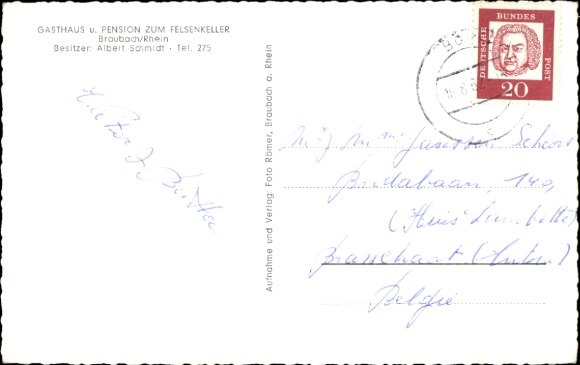 GASTHAUS u. PENSION ZUM FELSENKELLER
Braubach/Rhein
Besitzer: Albert Schmidt · Tel. 275
Aufnahme und Verlag: Foto Römer, Braubach a. Rhein
DEUTSCHE BUNDES POST
20
Janssen
Bredabaan, 149,
(Huis
Brasschaat (Antw.)
België